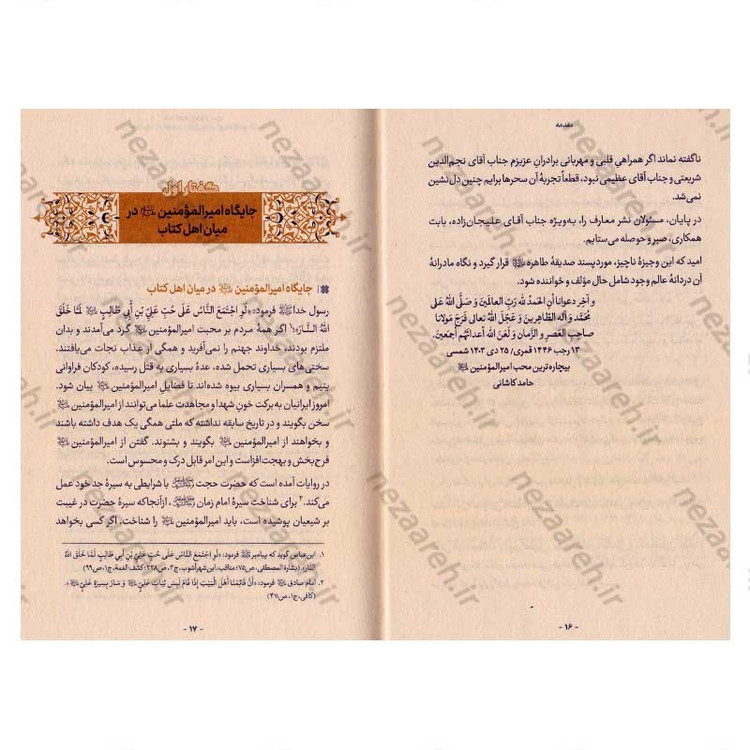 مقدمه
ناگفته نماند اگر همراهیِ قلبی و مهربانی برادرانِ عزیزم جناب آقای نجم‌الدین
شریعتی و جناب آقای عظیمی نبود، قطعاً تجربهٔ آن سحرها برایم چنین دل‌نشین
نمی‌شد.
در پایان، مسئولان نشر معارف را، به‌ویژه جناب آقای علیجان‌زاده، بابت
همکاری، صبر و حوصله می‌ستایم.
امید که این وجیزهٔ ناچیز، موردپسند صدیقهٔ طاهره قرار گیرد و نگاه مادرانهٔ
آن دردانهٔ عالم وجود شامل حال مؤلف و خواننده شود.
و آخِر دعوانا أنِ الحَمدُ لله رَبِّ العالَمینَ وَ صَلَّی اللهُ عَلی
مُحَمَّد وَ آلِهِ الطّاهِرینَ وَ عَجَّلَ اللهُ تَعالی فَرَجَ مَولانا
صاحِبِ العَصرِ وَ الزَّمان وَ لَعَنَ اللهُ أعدائَهُم أجمَعینَ.
۱۳ رجب ۱۴۴۶ قمری/ ۲۵ دی ۱۴۰۳ شمسی
بیچاره‌ترین محب امیرالمؤمنین
حامد کاشانی
- ۱۶ -
گفتار اول
جایگاه امیرالمؤمنین در
میان اهل کتاب
جایگاه امیرالمؤمنین در میان اهل کتاب
رسول خدا فرمود: «لَوِ اجْتَمَعَ النَّاسُ عَلَى حُبِّ عَلِيِّ بْنِ أَبِي طَالِبٍ لَمَا خَلَقَ
اللهُ النَّارَ»؛۱ اگر همهٔ مردم بر محبت امیرالمؤمنین گرد می‌آمدند و بدان
ملتزم بودند، خداوند جهنم را نمی‌آفرید و همگی از عذاب نجات می‌یافتند.
سختی‌های بسیاری تحمل شده، عدهٔ بسیاری به قتل رسیده، کودکان فراوانی
یتیم و همسران بسیاری بیوه شده‌اند تا فضایل امیرالمؤمنین بیان شود.
امروز ایرانیان به برکت خونِ شهدا و مجاهدت علما می‌توانند از امیرالمؤمنین
سخن بگویند و در تاریخ سابقه نداشته که ملتی همگی یک هدف داشته باشند
و بخواهند از امیرالمؤمنین بگویند و بشنوند. گفتن از امیرالمؤمنین
فرح‌بخش و بهجت‌افزاست و این امر قابل درک و محسوس است.
در روایات آمده است که حضرت حجت با شرایطی به سیرهٔ جد خود عمل
می‌کند.۲ برای شناخت سیرهٔ امام زمان، ازآنجاکه سیرهٔ حضرت در غیبت
بر شیعیان پوشیده است، باید امیرالمؤمنین را شناخت. اگر کسی بخواهد
۱. ابن‌عباس گوید که پیامبر فرمود: «لَوِ اجْتَمَعَ النَّاسُ عَلَى حُبِّ عَلِيِّ بْنِ أَبِي طَالِبٍ لَمَا خَلَقَ اللهُ
النَّارَ». (بشارة المصطفی، ص۷۵؛ مناقب، ابن‌شهرآشوب، ج۳، ص۲۳۸؛ کشف الغمة، ج۱، ص۹۹)
۲. امام صادق فرمود: «أَنَّ قَائِمَنَا أَهْلَ الْبَيْتِ إِذَا قَامَ لَبِسَ ثِيَابَ عَلِيٍّ وَ سَارَ بِسِيرَةِ عَلِيٍّ».
(کافی، ج۱، ص۴۱۱)
- ۱۷ -
nezaareh.ir